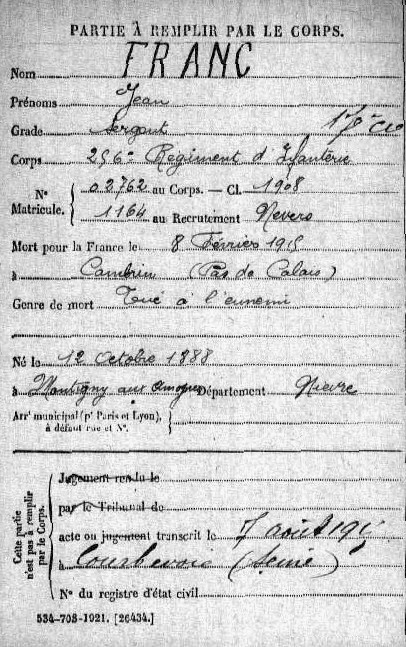 PARTIE À REMPLIR PAR LE CORPS.
Nom FRANC
Prénoms Jean
Grade Sergent 17e Cie
Corps 256e Régiment d'Infanterie
N° Matricule. 02762 au Corps. — Cl. 1908
1164 au Recrutement Nevers
Mort pour la France le 8 Février 1915
à Cambrin (Pas de Calais)
Genre de mort Tué à l'ennemi
Né le 12 Octobre 1888
à Montigny aux Amognes Département Nièvre
Arrt municipal (pr Paris et Lyon),
à défaut rue et N°.
Cette partie n'est pas à remplir par le Corps.
Jugement rendu le
par le Tribunal de
acte ou jugement transcrit le 7 août 1915
à Courbevoie (Seine)
N° du registre d'état civil
534-708-1921. [26434.]